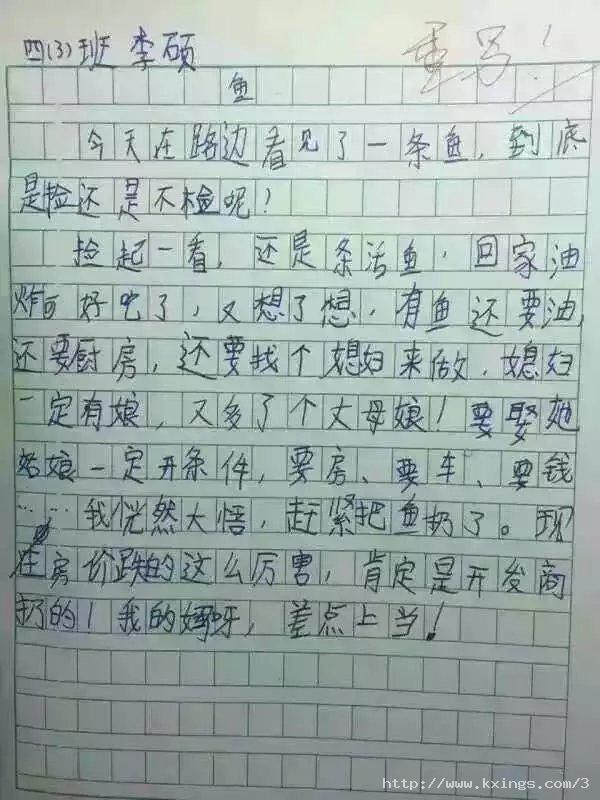 四(3)班 李硕
重写!
鱼
今天在路边看见了一条鱼,到底
是捡还是不检呢!
捡起一看,还是条活鱼,回家油
炸可好吃了,又想了想,有鱼还要油,
还要厨房,还要找个媳妇来做,媳妇
一定有娘,又多了个丈母娘!要娶她
姑娘一定开条件,要房、要车、要钱
……我恍然大悟,赶紧把鱼扔了。现
在房价跌的这么厉害,肯定是开发商
扔的!我的妈呀,差点上当!
http://www.kxings.com/3